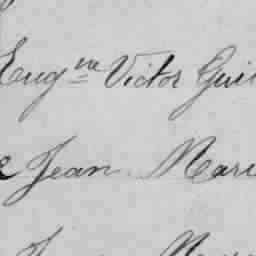 Eugne Victor Gui
e Jean Mari